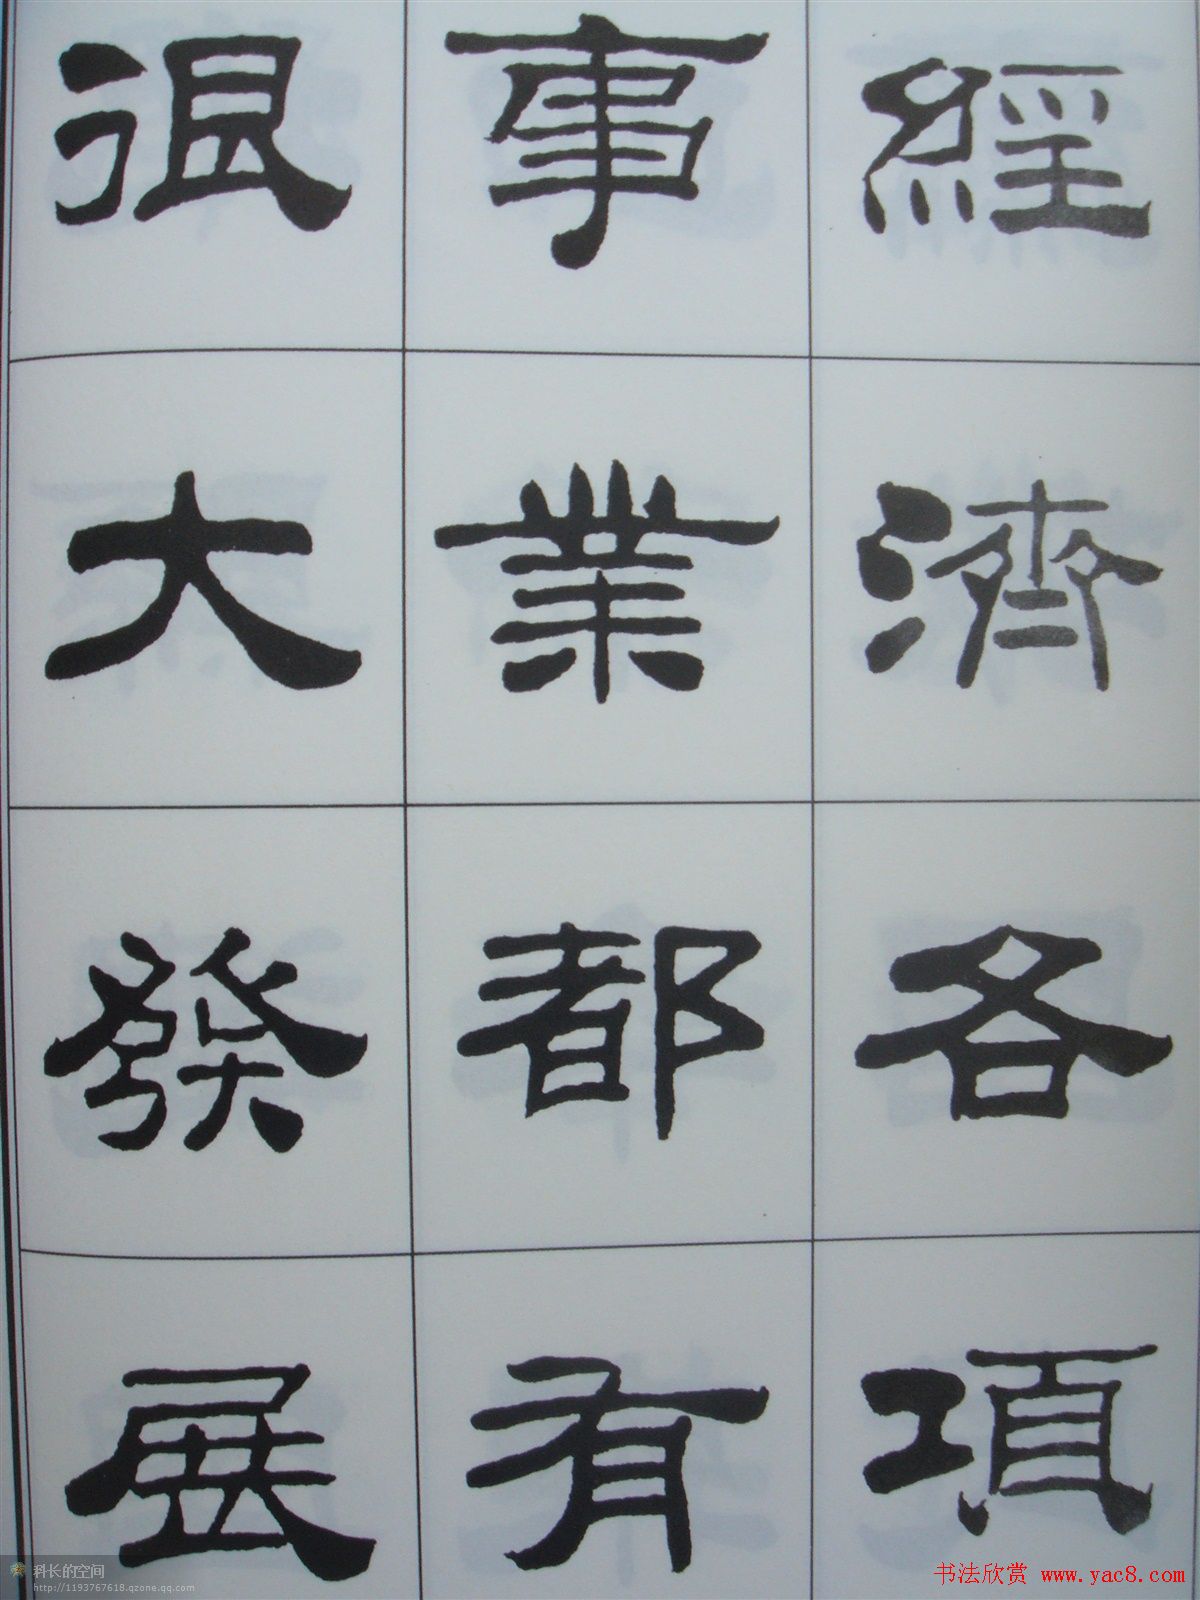 經濟各項
事業都有
很大發展
科长的空间
http://1193767618.qzone.qq.com
书法欣赏 www.yac8.com